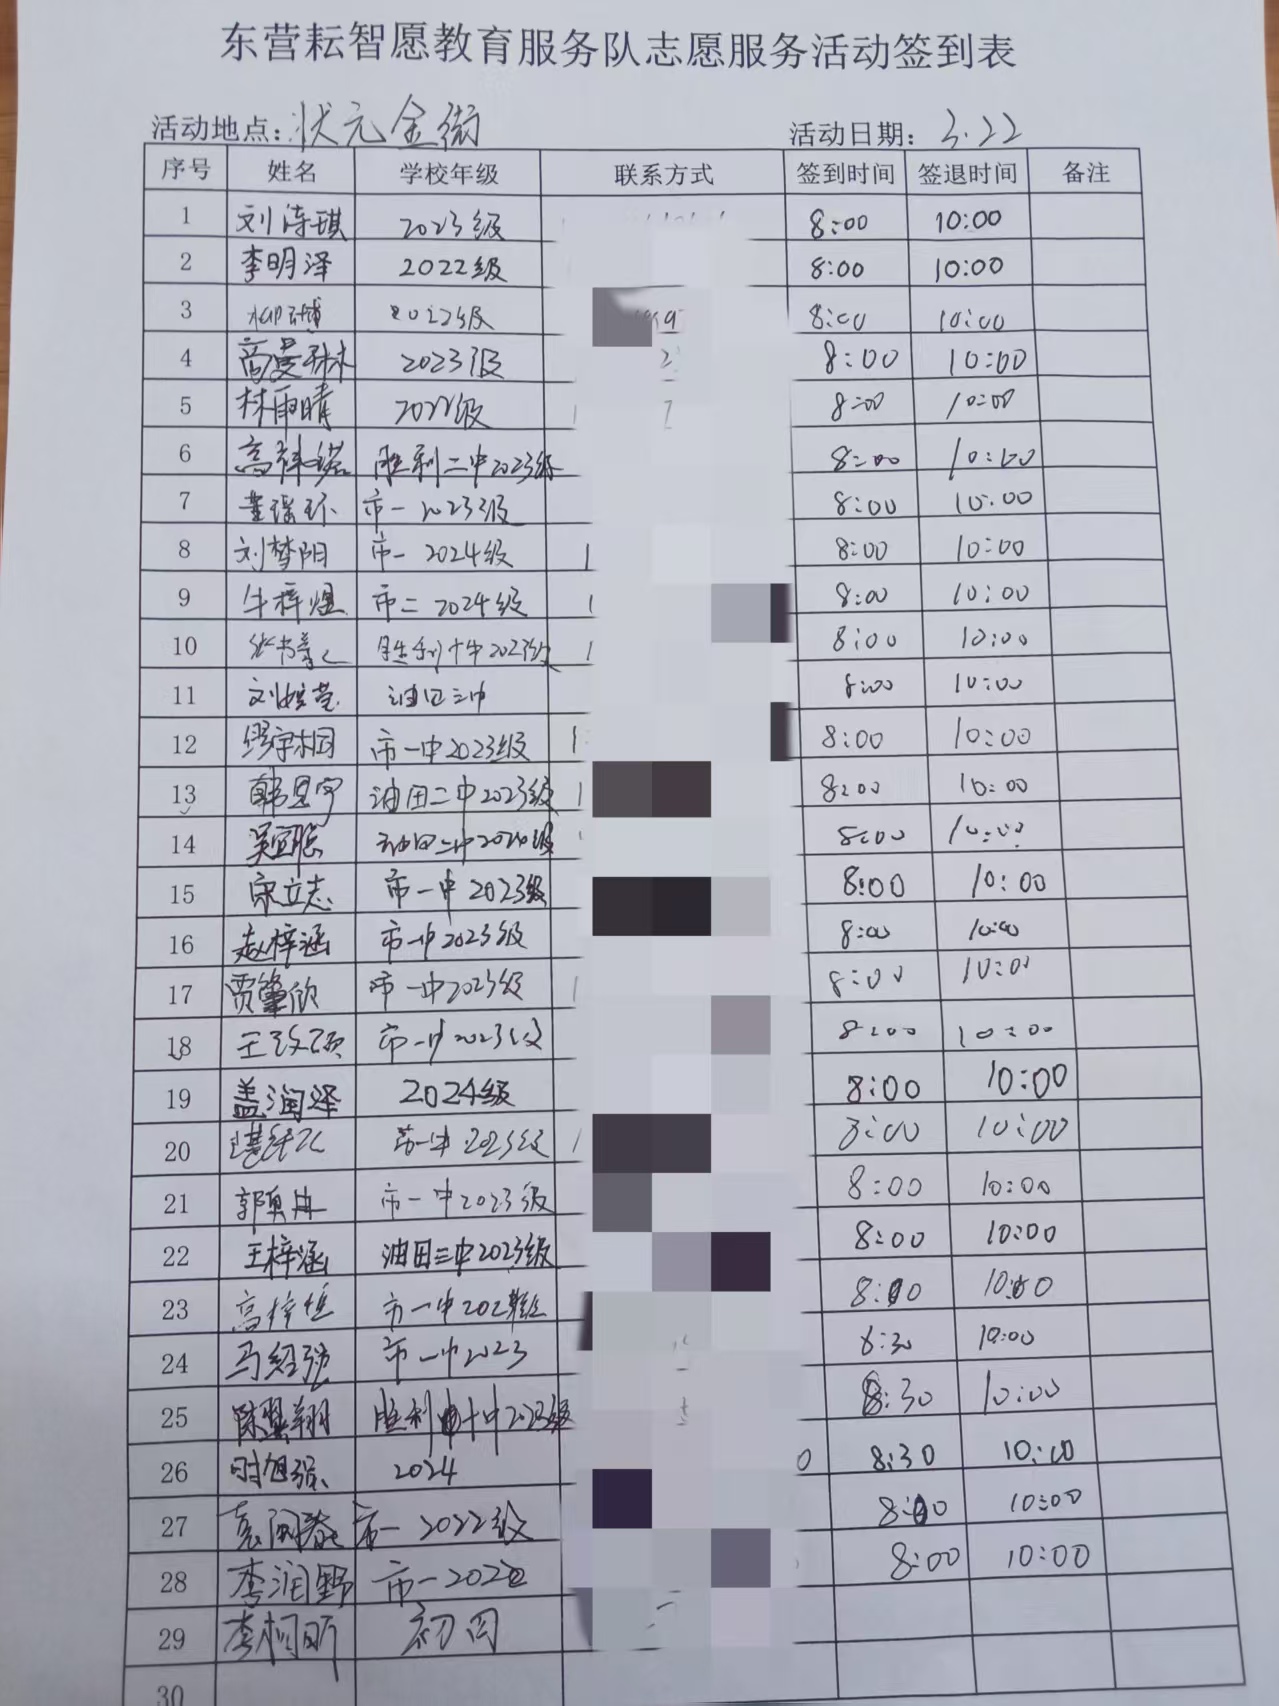 东营耘智愿教育服务队志愿服务活动签到表
活动地点：状元金街 活动日期：3.22
序号 姓名 学校年级 联系方式 签到时间 签退时间 备注
1 刘涛琪 2023级 8:00 10:00
2 李明泽 2022级 8:00 10:00
3 2022级 8:00 10:00
4 高曼琳 2023级 8:00 10:00
5 林雨晴 2022级 8:00 10:00
6 高祥 胜利二中2023级 8:00 10:00
7 董瑷环 市一 2023级 8:00 10:00
8 刘梦阳 市一 2024级 8:00 10:00
9 牛梓煜 市二 2024级 8:00 10:00
10 张书 胜利十中2023级 8:00 10:00
11 刘 油田三中 8:00 10:00
12 市一中2023级 8:00 10:00
13 韩思宇 油田二中2023级 8:00 10:00
14 吴宜聪 油田二中 8:00 10:00
15 宋立志 市一中 2023级 8:00 10:00
16 赵梓涵 市一中2023级 8:00 10:00
17 贾肇欣 市一中2023级 8:00 10:00
18 王 市一中2023级 8:00 10:00
19 盖润泽 2024级 8:00 10:00
20 市一中 2023级 8:00 10:00
21 郭冉 市一中2023级 8:00 10:00
22 王梓涵 油田三中2023级 8:00 10:00
23 高梓恒 市一中202级 8:00 10:00
24 马绍弛 市一中2023 8:30 10:00
25 陈翼翔 胜利十中2023级 8:30 10:00
26 时旭 2024 8:30 10:00
27 袁闻 市一 2022级 8:00 10:00
28 李润野 市一2022 8:00 10:00
29 李桐昕 初四
30